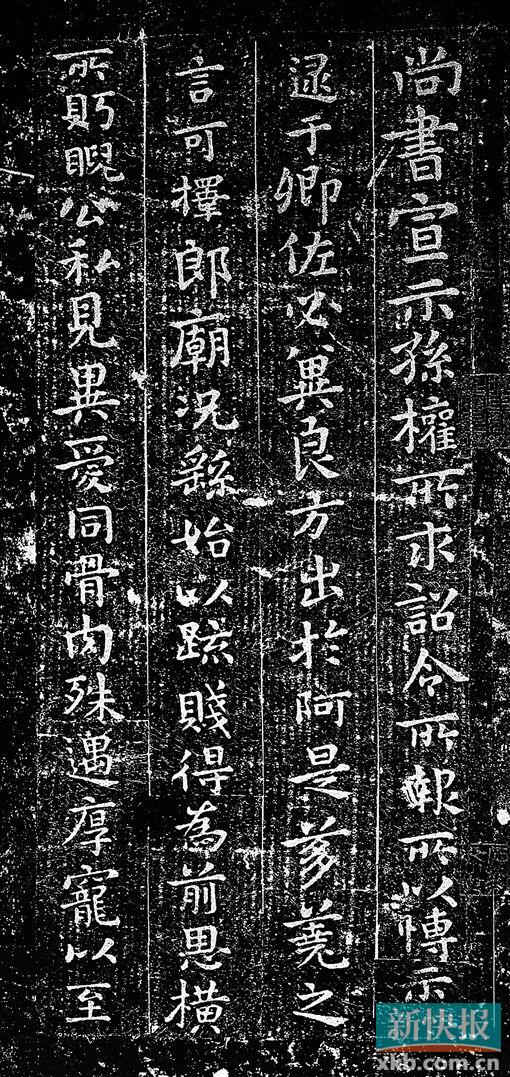 尚書宣示孫權所求詔令所報所以博示
逮于卿佐必冀良方出於阿是芻蕘之
言可擇郎廟況繇始以疏賤得為前恩橫
所眄睨公私見異愛同骨肉殊遇厚寵以至
新快报
xkb.com.cn